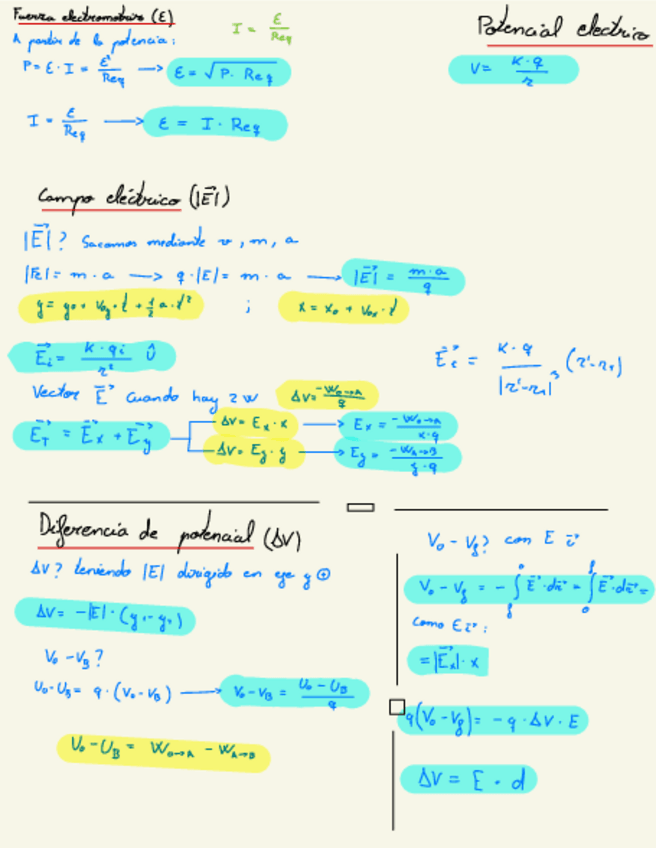 Fuerza electromotriz (ε)
I = ε/Req
A partir de la potencia:
P = ε · I = ε²/Req → ε = √(P · Req)
I = ε/Req → ε = I · Req
Potencial electrico
V = K·q/r
Campo eléctrico (|E⃗|)
|E⃗|? Sacamos mediante v, m, a
|Fe| = m · a → q · |E| = m · a → |E⃗| = m·a/q
y = y₀ + v₀y · t + 1/2 a · t² ; x = x₀ + v₀x · t
E⃗i = K · qi/r² Û
E⃗ = K · q/|r⃗-r₁|³ (r⃗-r₁)
Vector E⃗ cuando hay 2 W ΔV = -W₀→A/q
E⃗T = E⃗x + E⃗y
ΔV = Ex · x → Ex = -W₀→A/x·q
ΔV = Ey · y → Ey = -WA→B/y·q
Diferencia de potencial (ΔV)
ΔV? teniendo |E| dirigido en eje y ⊕
ΔV = -|E| · (y₁-y₀)
V₀ - VB?
U₀-UB = q · (V₀-VB) → V₀-VB = U₀-UB/q
U₀-UB = W₀→A - WA→B
V₀ - Vf? con E i⃗
V₀ - Vf = -∫ E⃗·dr⃗ = ∫ E⃗·dr⃗ =
como E i⃗:
= |E⃗x| · x
q(V₀-Vf) = -q · ΔV · E
ΔV = E · d